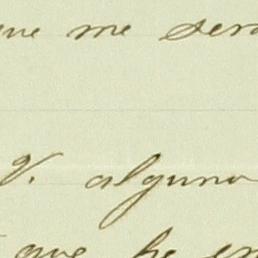 que me será
V. alguna
que he